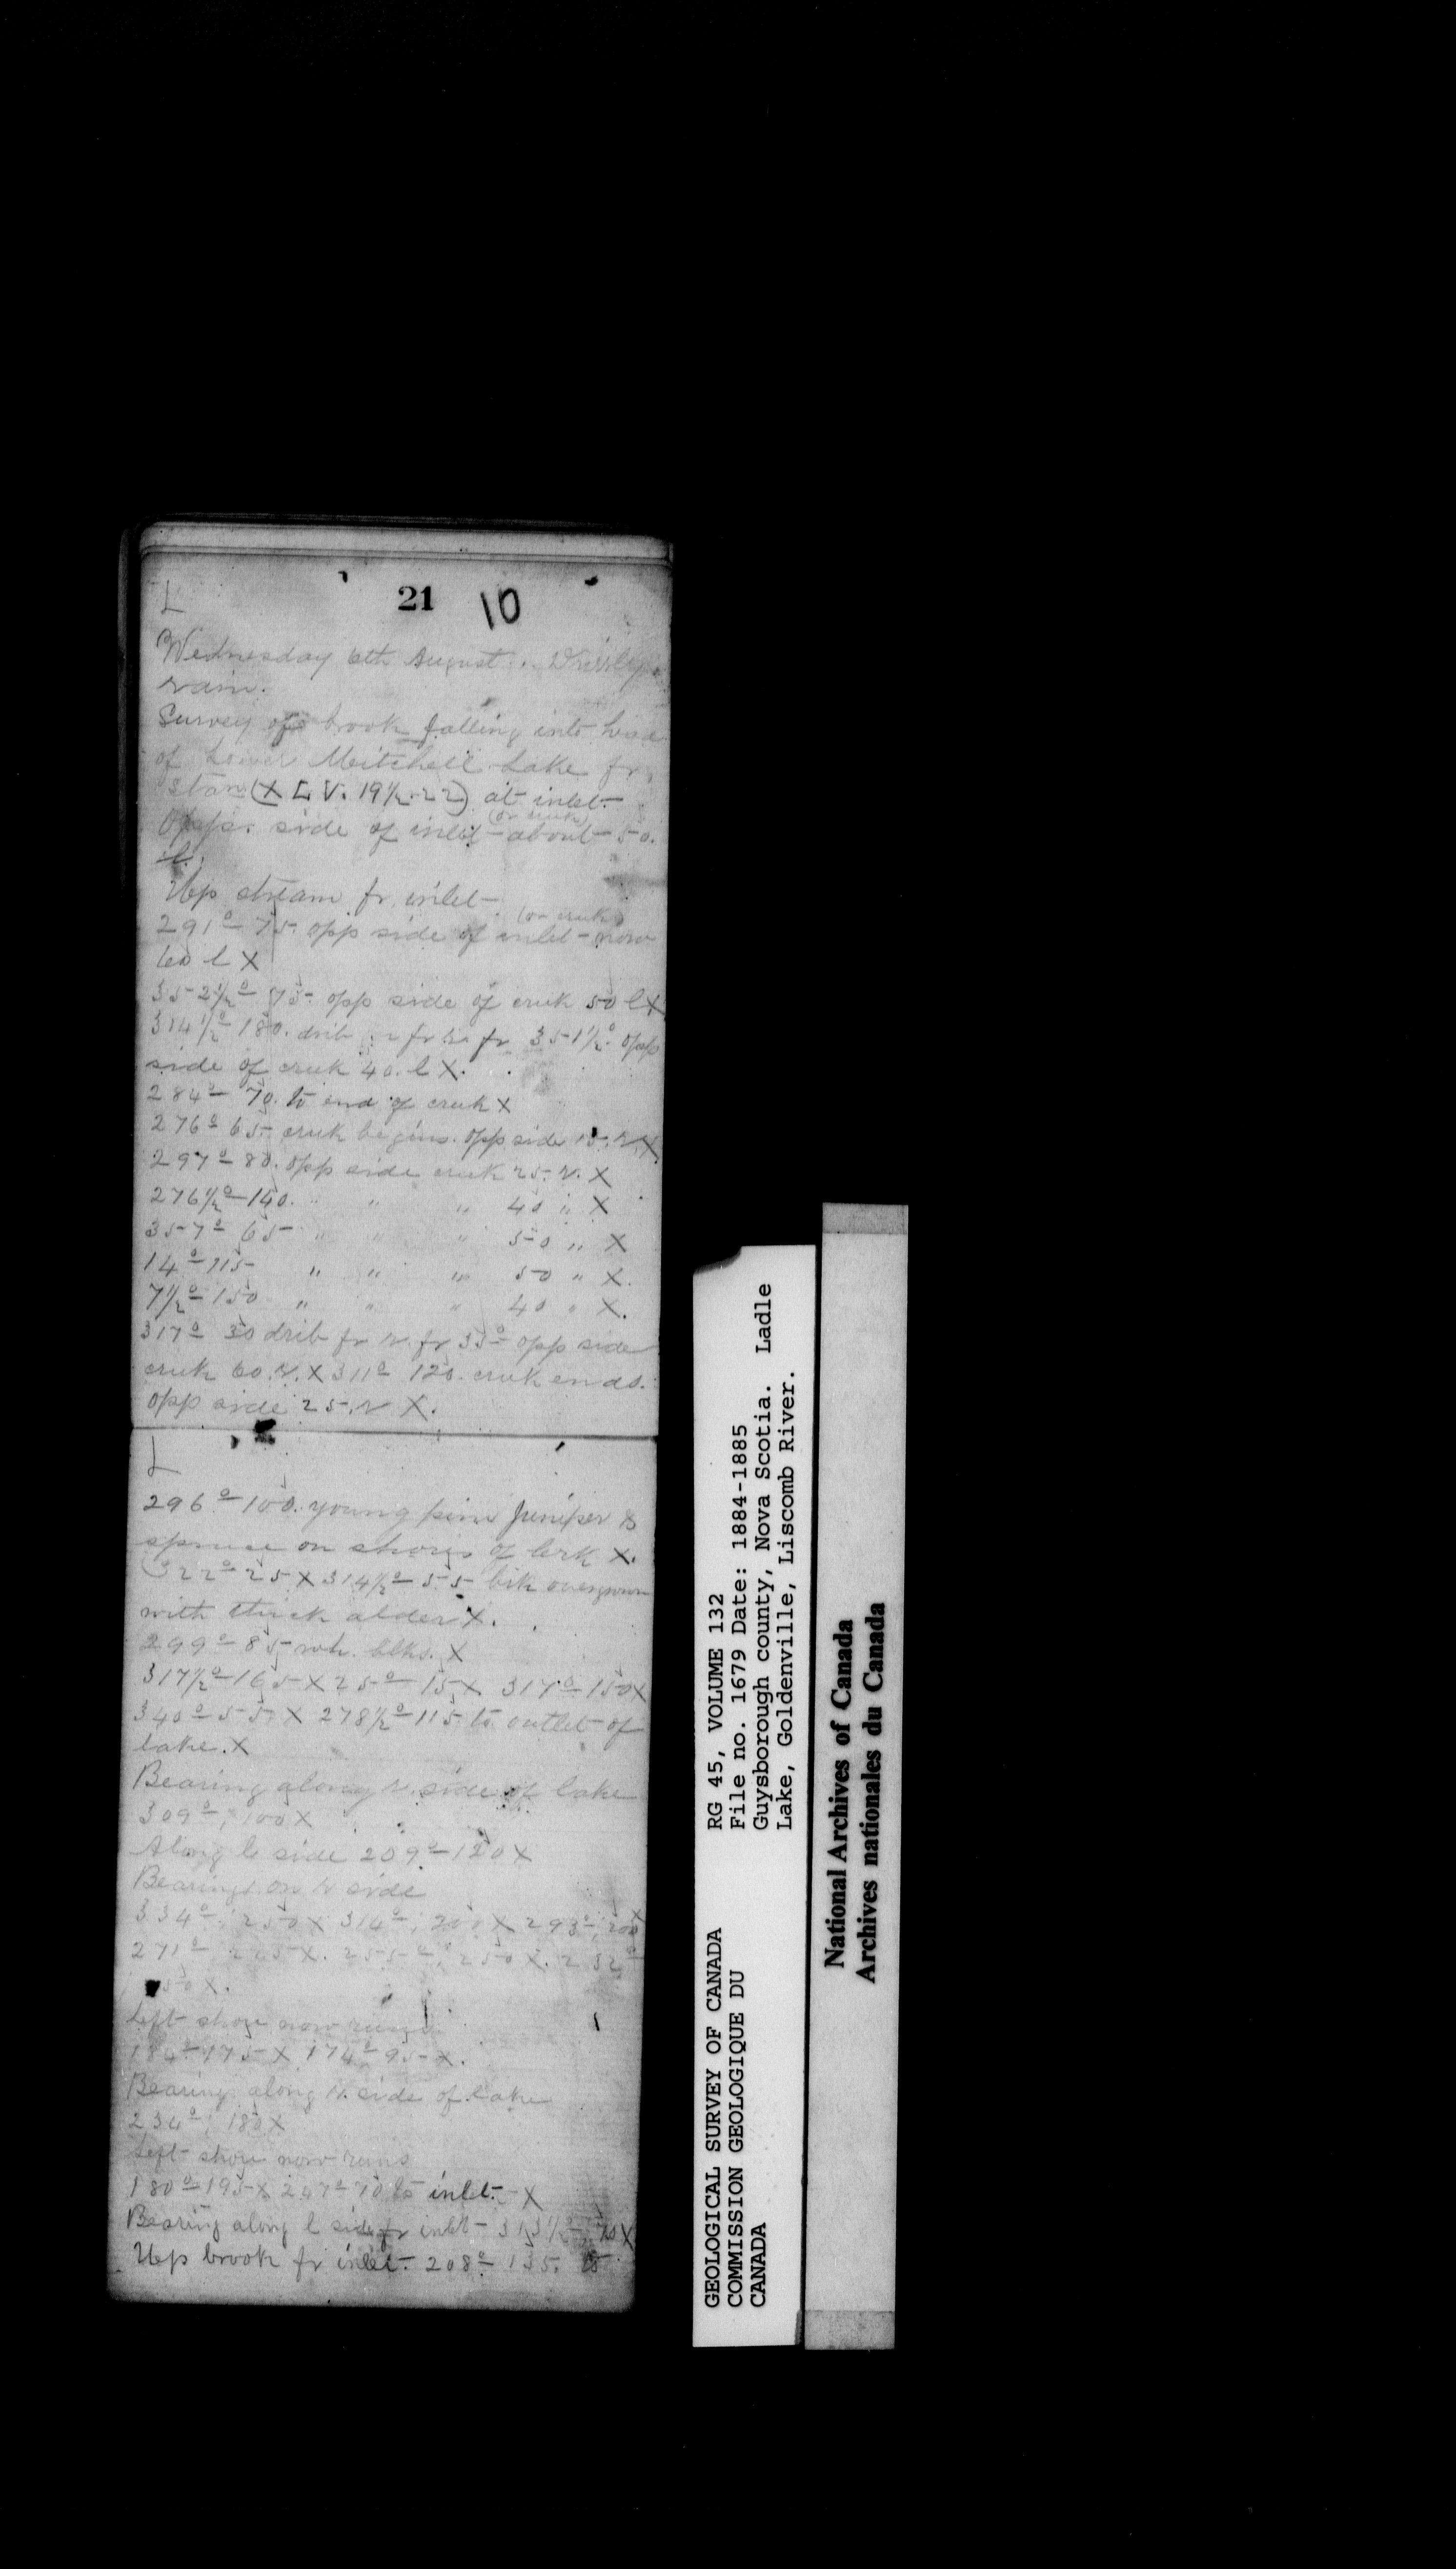 L
21 10
Wednesday 6th August. Drizzly
rain.
Survey of brook falling into head
of Lower Mitchell Lake fr.
stan (X L V. 19½-22) at inlet.
(or creek)
Opps. side of inlet - about 50.
l.
Up stream fr. inlet.
(or creek)
291° 75. opp side of inlet - now
60 l X
352½° 75. opp side of creek 50 l X
314½° 180. drib fr r. fr 351½° opp
side of creek 40. l X.
284° 70. to end of creek X
276° 65. creek begins. opp side 15. r. X
297° 80. opp side creek 25. r. X
276½° 140. " " " 40 " X
357° 65 " " " 50 " X
14° 115 " " " 50 " X.
7½° 150 " " " 40 " X.
317° 30 drib fr r. fr 33° opp side
creek 60. r. X 311° 120. creek ends.
opp side 25. r X.
L
296° 100. young pine juniper &
spruce on shores of brk X.
322° 25 X 314½° 55 brk overgrown
with thick alder X.
299° 85 wh. blks. X
317½° 165 X 25° 15 X 317° 150 X
340° 55. X 278½° 115 to outlet of
lake. X
Bearing along r. side of lake
309°, 100 X
Along l. side 209° 120 X
Bearings on r side
334°, 250 X 314°, 200 X 293°, 200 X
271°, 225 X. 255°, 250 X. 232°
50 X.
Left shore now runs
175 X 174° 95 X.
Bearing along r. side of lake
234°, 180 X
Left shore now runs
180° 195 X 247° 70 to inlet. X
Bearing along l side fr inlet - 313½° X
Up brook fr inlet. 208° 135. to
GEOLOGICAL SURVEY OF CANADA
COMMISSION GEOLOGIQUE DU
CANADA
RG 45, VOLUME 132
File no. 1679 Date: 1884-1885
Guysborough county, Nova Scotia. Ladle
Lake, Goldenville, Liscomb River.
National Archives of Canada
Archives nationales du Canada